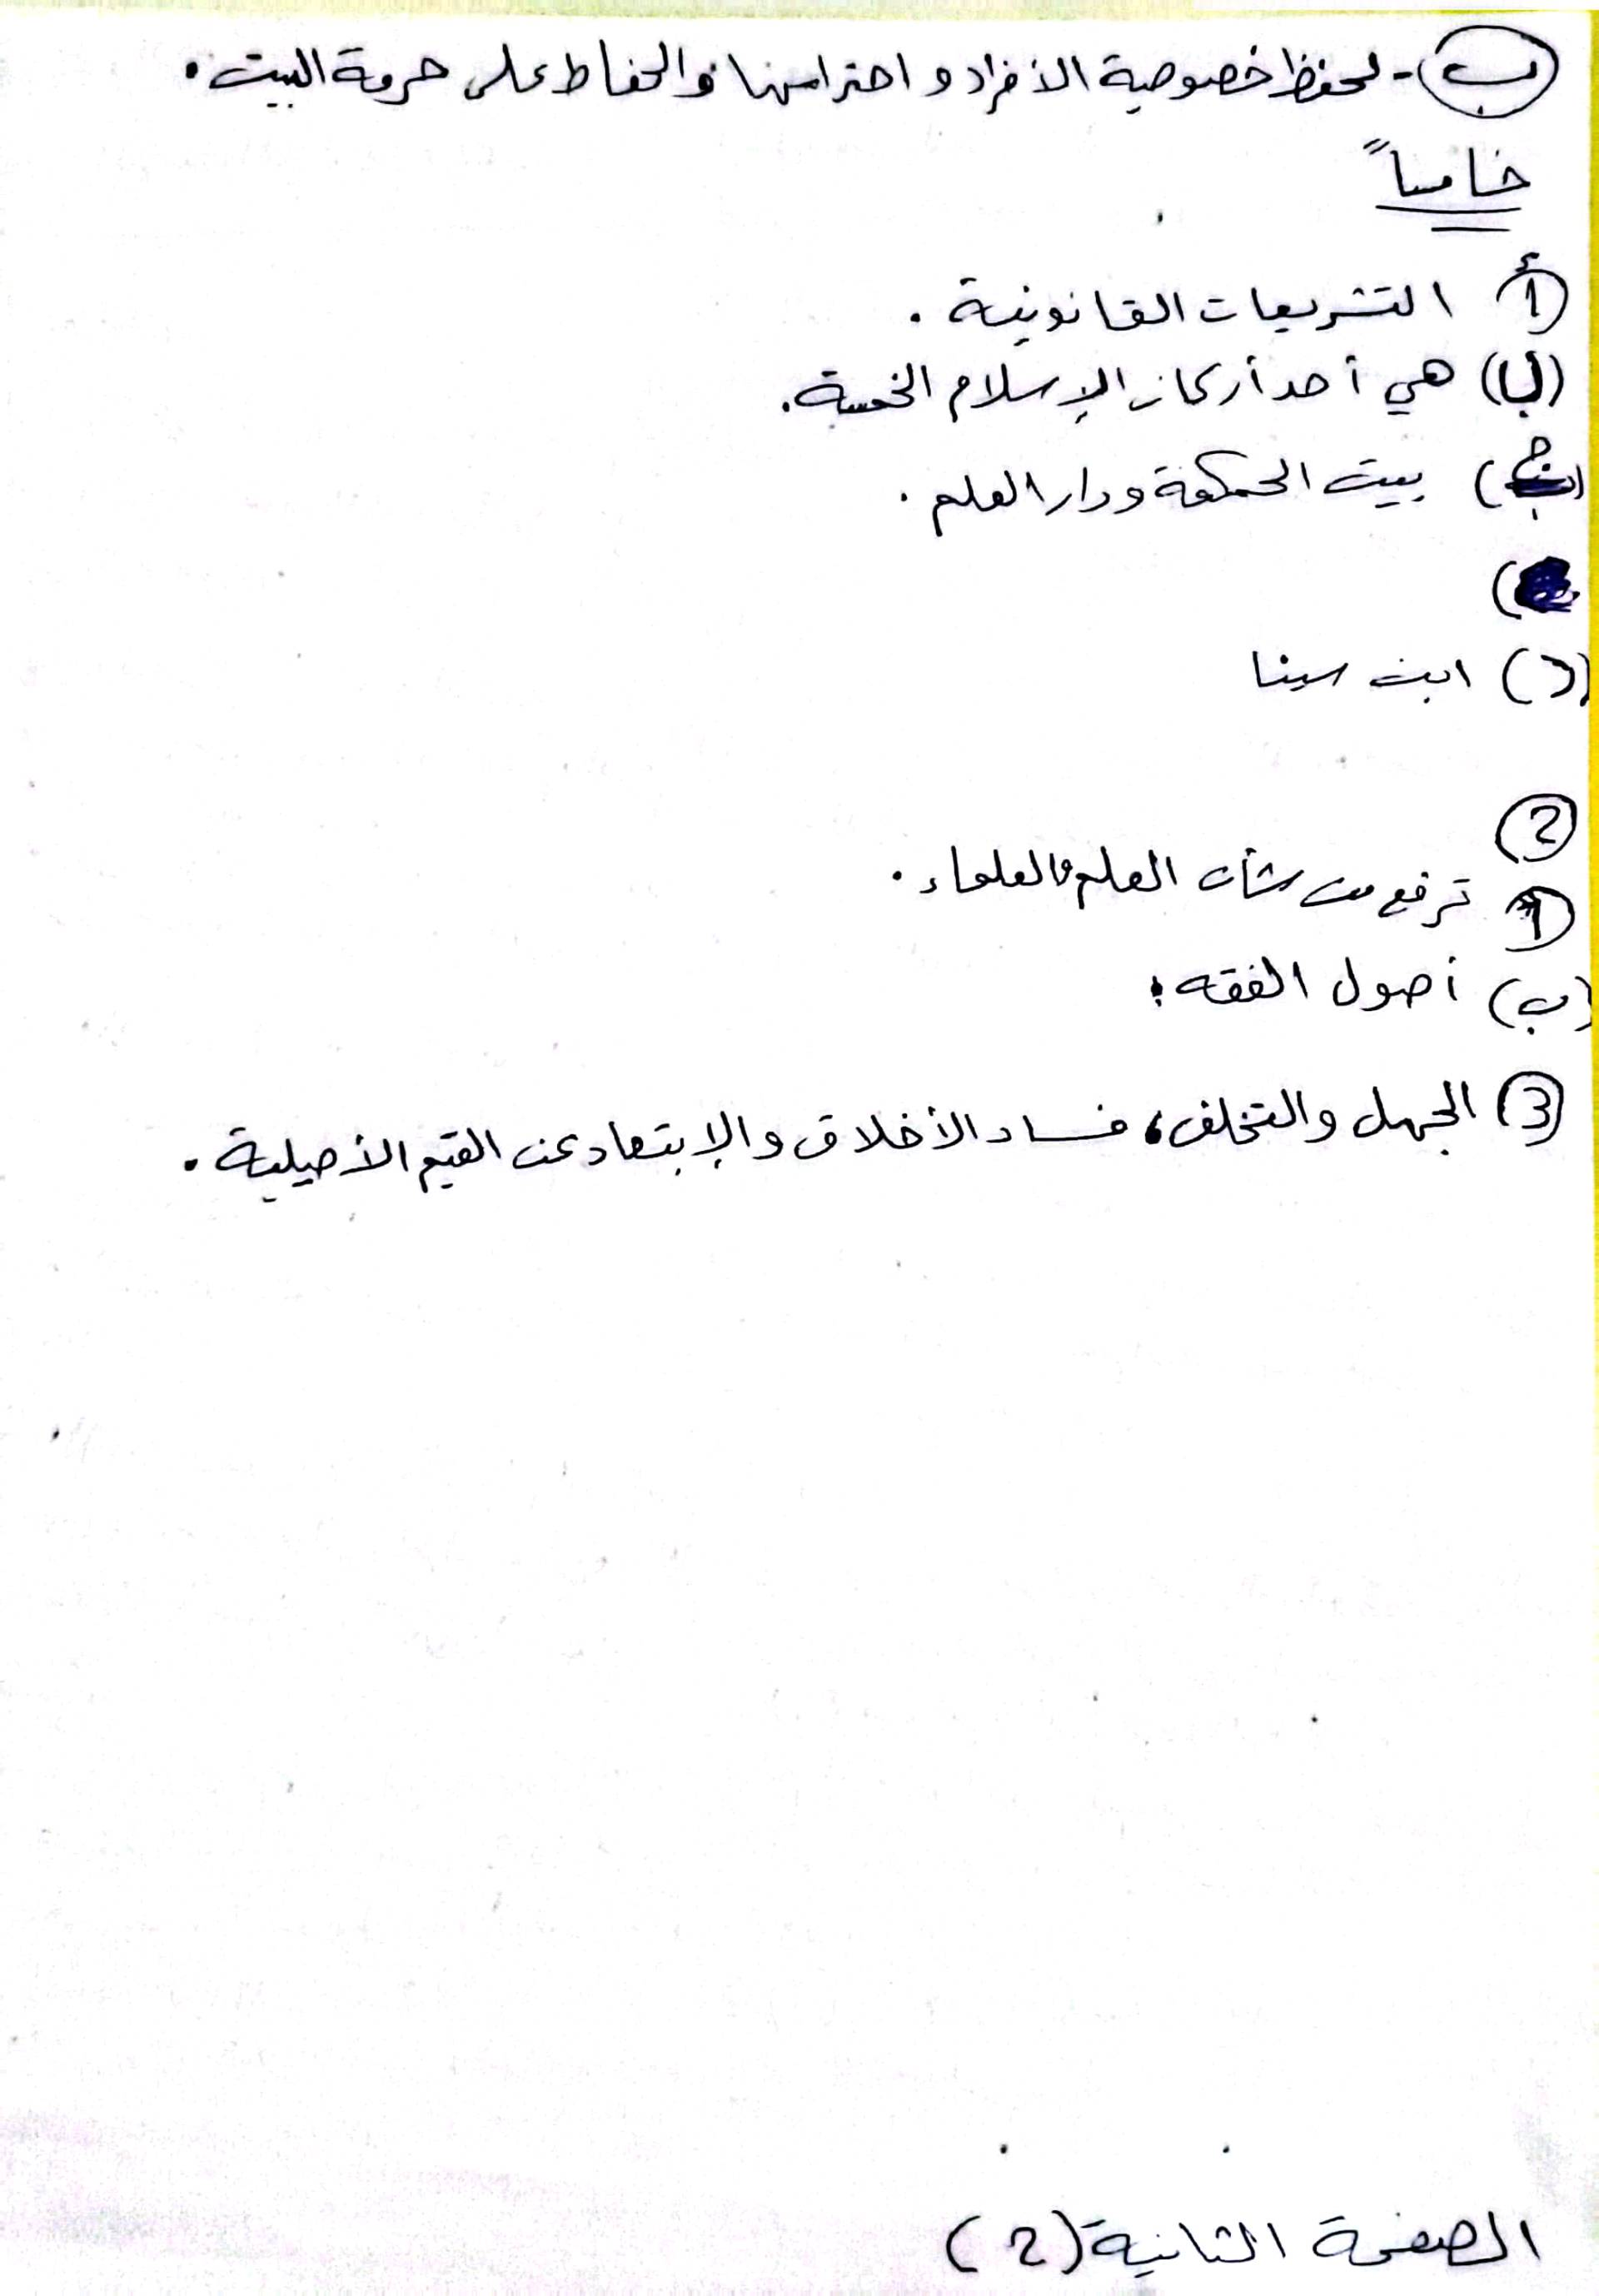 ب - لحفظ خصوصية الأفراد و احترامها والحفاظ على حرمة البيت .
خامساً
أ التشريعات القانونية .
(ب) هي أحد أركان الإسلام الخمسة.
(ج) بيت الحكمة ودار العلم .
(د) ابن سينا
2
أ ترفع من شأن العلم والعلماء .
(ب) أصول الفقه .
3 الجهل والتخلف، فساد الأخلاق والإبتعاد عن القيم الأصيلية .
الصفحة الثانية (2)